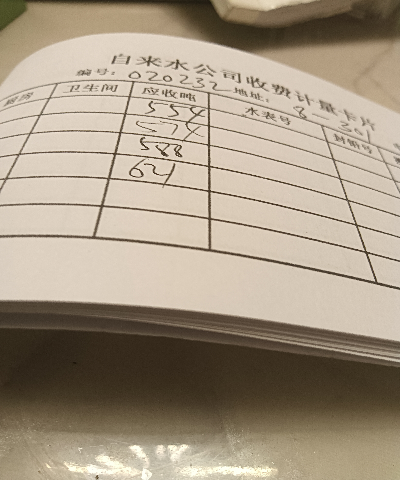 自来水公司收费计量卡片
编号：020232 地址：8－301
厨房 卫生间 应收吨 水表号 封铅号
554
574
588
621